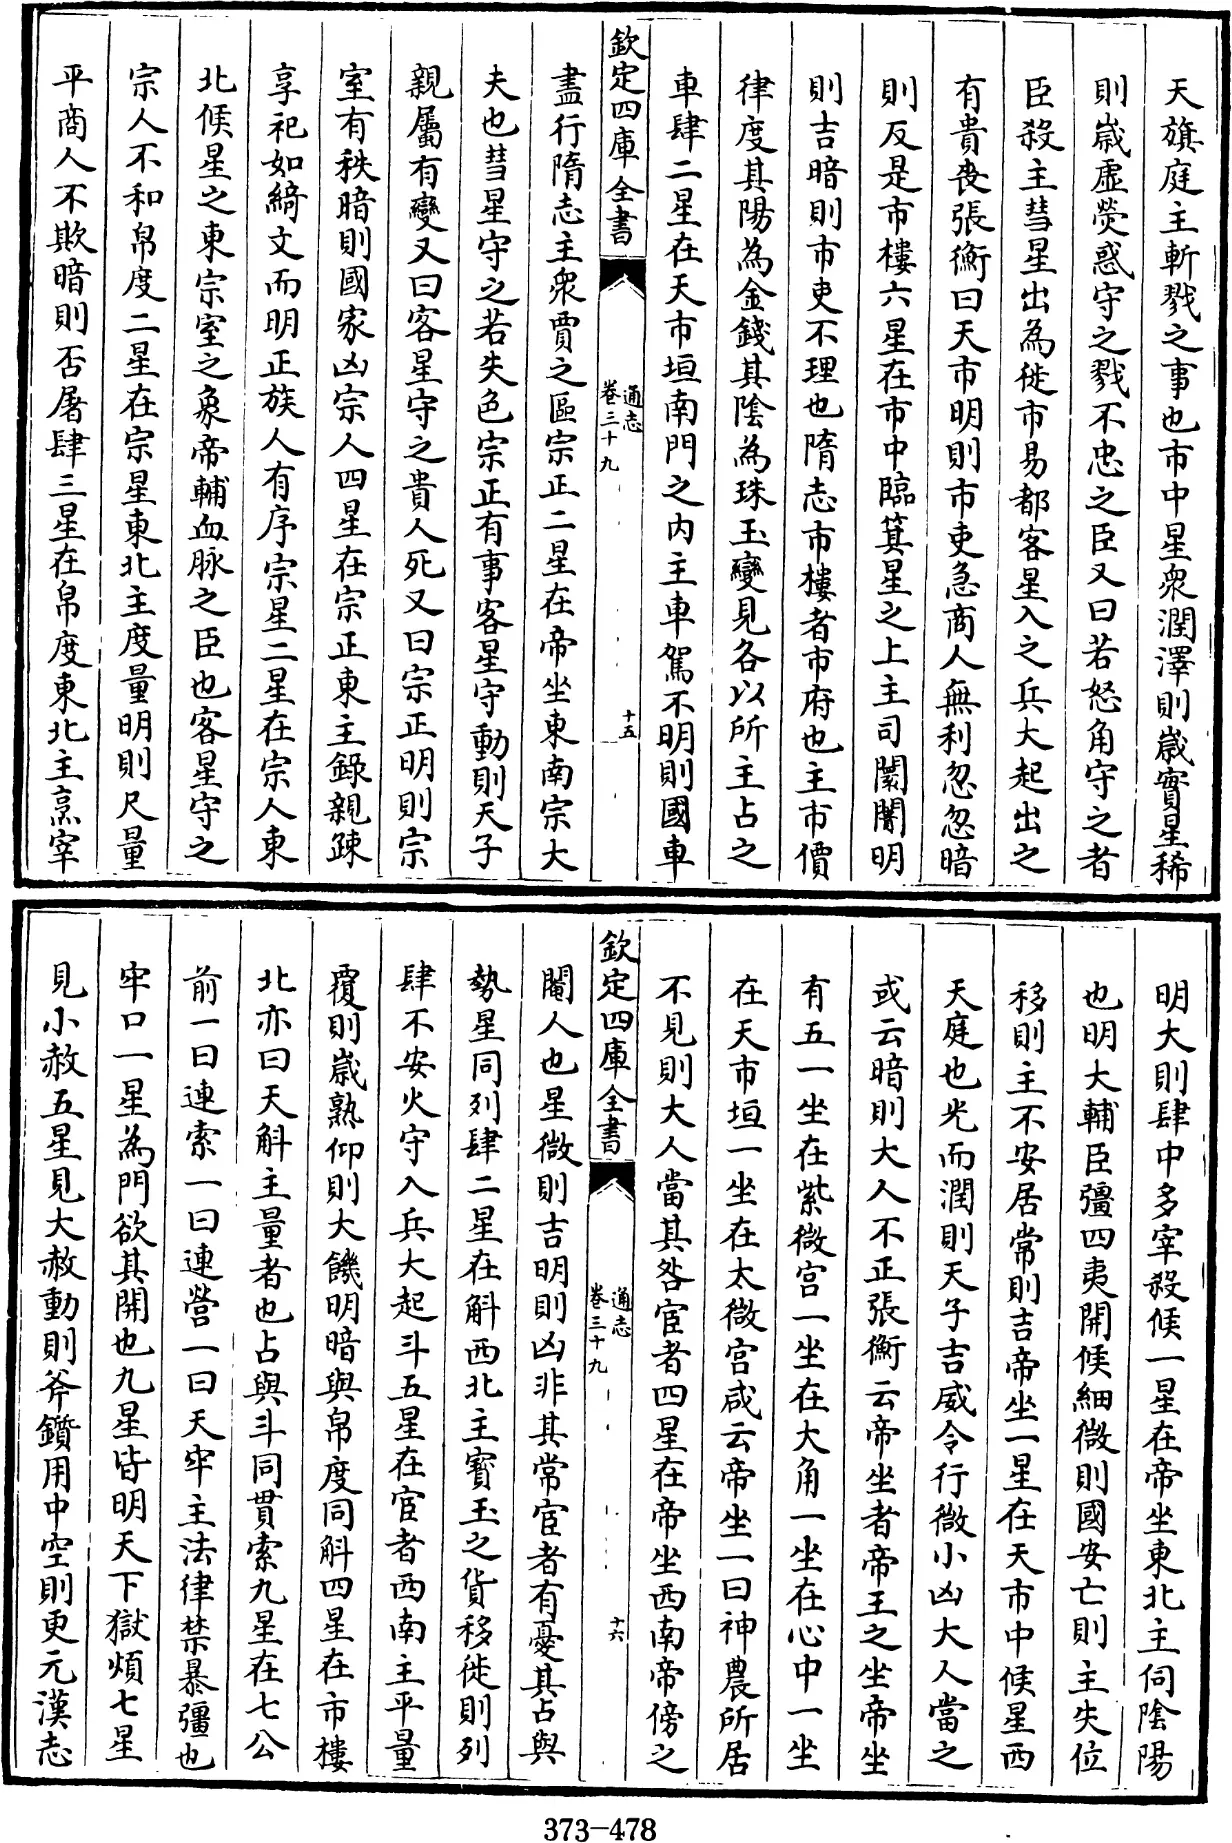 天旗庭主斬戮之事也市中星衆潤澤則歲實星稀
則歲虛熒惑守之戮不忠之臣又曰若怒角守之者
臣殺主彗星出為徙市易都客星入之兵大起出之
有貴喪張衡曰天市明則市吏急商人無利忽忽暗
則反是市樓六星在市中臨箕星之上主司闤闠明
則吉暗則市吏不理也隋志市樓者市府也主市價
律度其陽為金錢其陰為珠玉變見各以所主占之
車肆二星在天市垣南門之內主車駕不明則國車
欽定四庫全書
通志
卷三十九
十五
盡行隋志主衆賈之區宗正二星在帝坐東南宗大
夫也彗星守之若失色宗正有事客星守動則天子
親屬有變又曰客星守之貴人死又曰宗正明則宗
室有秩暗則國家凶宗人四星在宗正東主錄親疎
享祀如綺文而明正族人有序宗星二星在宗人東
北候星之東宗室之象帝輔血脉之臣也客星守之
宗人不和帛度二星在宗星東北主度量明則尺量
平商人不欺暗則否屠肆二星在帛度東北主烹宰
明大則肆中多宰殺候一星在帝坐東北主伺陰陽
也明大輔臣彊四夷開候細微則國安亡則主失位
移則主不安居常則吉帝坐一星在天市中候星西
天庭也光而潤則天子吉威令行微小凶大人當之
或云暗則大人不正張衡云帝坐者帝王之坐帝坐
有五一坐在紫微宮一坐在大角一坐在心中一坐
在天市垣一坐在太微宮咸云帝坐一曰神農所居
不見則大人當其咎宦者四星在帝坐西南帝傍之
欽定四庫全書
通志
卷三十九
十六
閹人也星微則吉明則凶非其常宦者有憂其占與
勢星同列肆二星在斛西北主寶玉之貨移徙則列
肆不安火守入兵大起斗五星在宦者西南主平量
覆則歲熟仰則大饑明暗與帛度同斛四星在市樓
北亦曰天斛主量者也占與斗同貫索九星在七公
前一曰連索一曰連營一曰天牢主法律禁暴彊也
牢口一星為門欲其開也九星皆明天下獄煩七星
見小赦五星見大赦動則斧鑕用中空則更元漢志
373-478